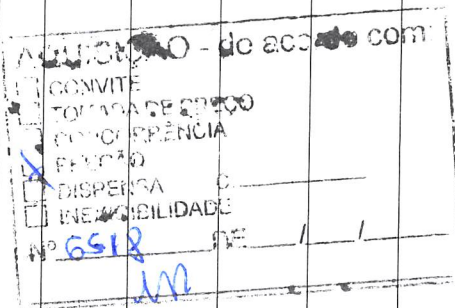 AQUISIÇÃO - de acordo com
CONVITE
TOMADA DE PREÇO
CONCORRÊNCIA
PREGÃO
DISPENSA
INEXIGIBILIDADE
Nº 6518 DE / /